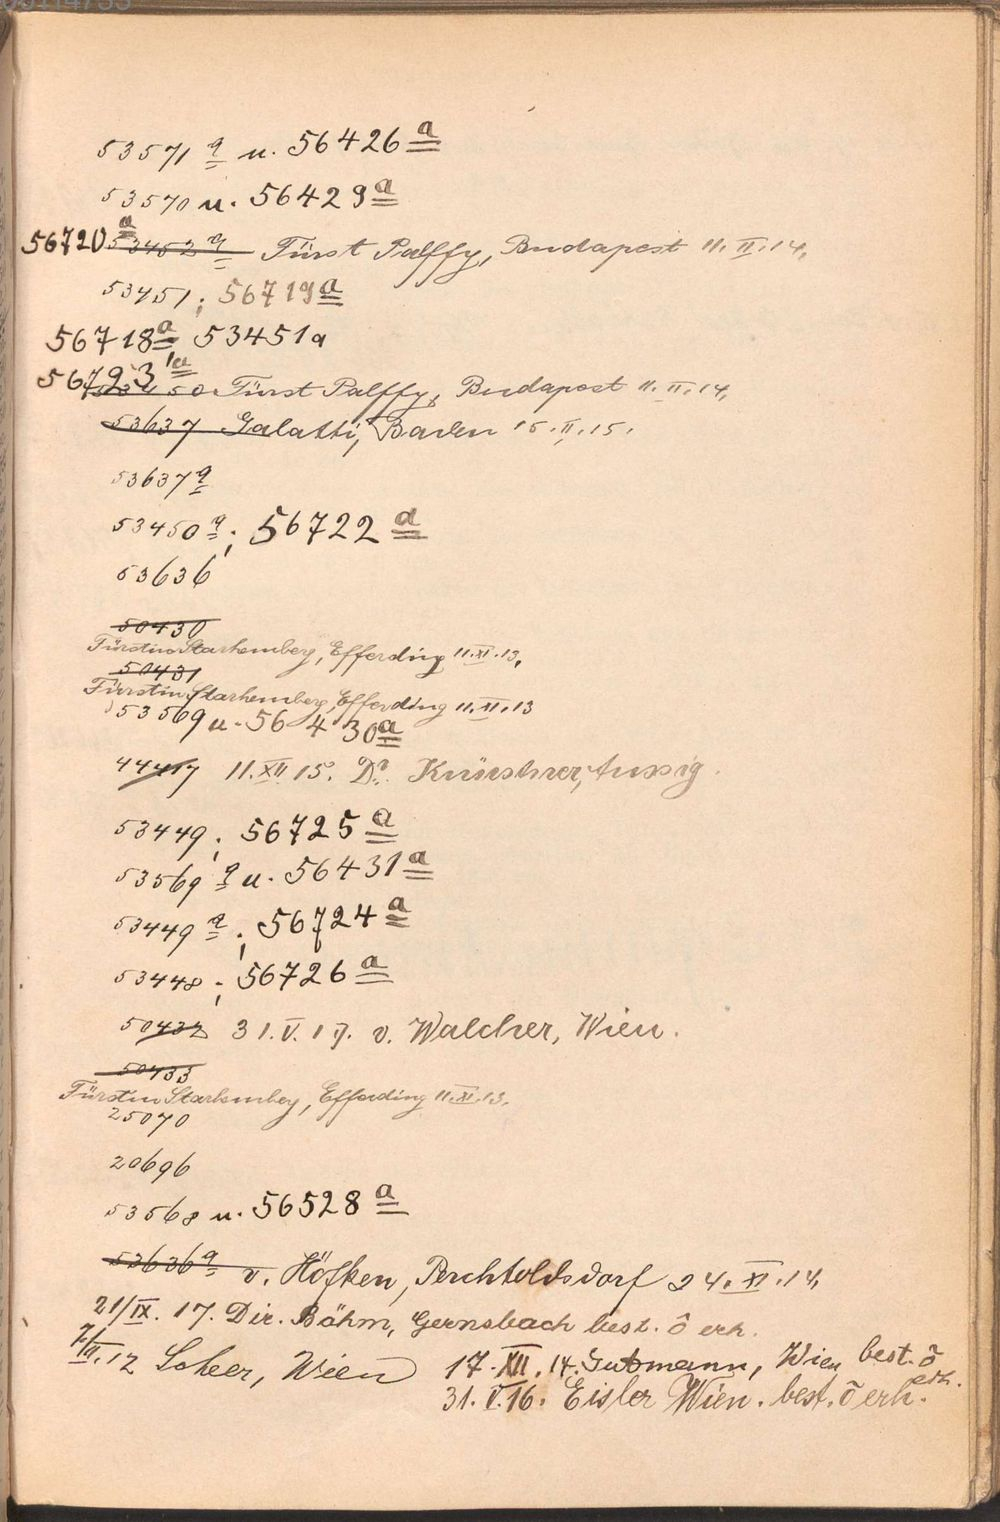 53571 a u. 56426 a
53570 u. 56429 a
56720 a 53452 a Fürst Palffy, Budapest 11. II. 14.
53451 ; 56719 a
56718 a 53451a
56723 a 53450 Fürst Palffy, Budapest 11. II. 14.
53637 Galatti, Baden 15. II. 15.
53637 a
53450 a ; 56722 a
53636
50430
Fürstin Starhemberg, Efferding 11. XI. 13.
50431
Fürstin Starhemberg, Efferding 11. XI. 13
53569 u. 56430 a
44417 11. XII 15. Dr.
53449 ; 56725 a
53569 a u. 56431 a
53449 a ; 56724 a
53448 ; 56726 a
50432 31. V. 17. v. Walcher, Wien.
50433
Fürstin Starhemberg, Efferding 11. XI. 13.
25070
20696
53568 u. 56528 a
53636 a v. Höfken, Perchtoldsdorf 24. XI. 14.
21/IX. 17. Dir. Böhm, Gernsbach best. õ erh.
12 Scheer, Wien 17. XII. 14. Gutmann, Wien best. õ erh.
31. V. 16. Eisler Wien. best. õ erh.